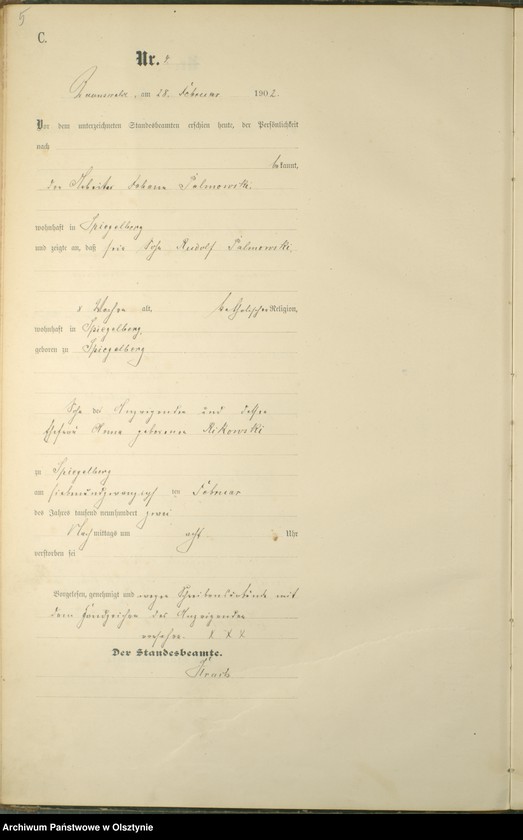 5
C.
Nr. 4
am 28. Februar 1902.
Vor dem unterzeichneten Standesbeamten erschien heute, der Persönlichkeit
nach
bekannt,
der Arbeiter Johann Palmowski
wohnhaft in Spiegelberg
und zeigte an, daß sein Sohn Rudolf Palmowski
8 Wochen alt, katholischer Religion,
wohnhaft in Spiegelberg,
geboren zu Spiegelberg
Sohn des Anzeigenden und dessen
Ehefrau Anna geborenen Rikowski
zu Spiegelberg
am siebenundzwanzigsten Februar
des Jahres tausend neunhundert zwei
Nach mittags um acht Uhr
verstorben sei
Vorgelesen, genehmigt und wegen Schreibensunkunde mit
dem Handzeichen des Anzeigenden
versehen. X X X
Der Standesbeamte.
Archiwum Państwowe w Olsztynie